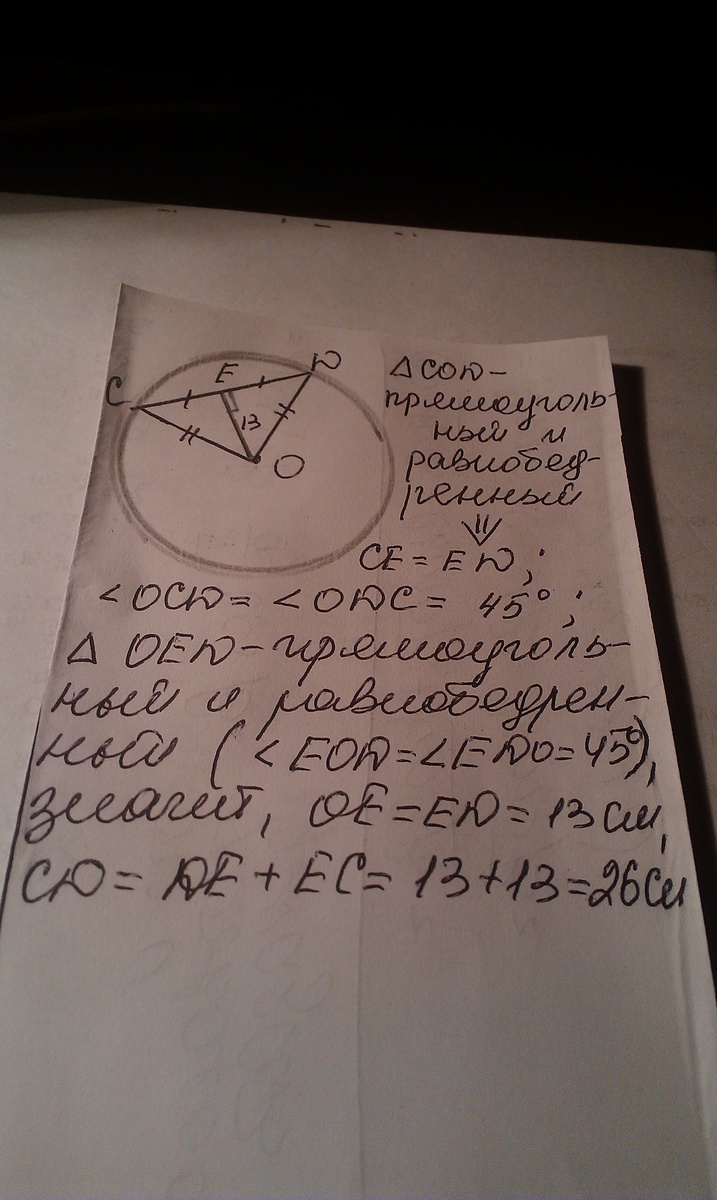 C
E
D
13
O
△COD-
прямоуголь-
ный и
равнобед-
ренный
⇓
CE = ED ;
∠OCD = ∠ODC = 45° ;
△ OED - прямоуголь-
ный и равнобедрен-
ный (∠EOD = ∠EDO = 45°),
значит, OE = ED = 13 см,
CD = DE + EC = 13 + 13 = 26 см